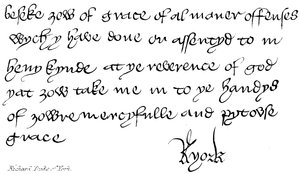 beseke zow of grace of al maner offenses
wychy have done or assentyd to in
heny kynde at ye reverence of god
yat zow take me in to ye handys
of zowre mercyfulle and pytowse
grace
R york
Richard Duke of York.